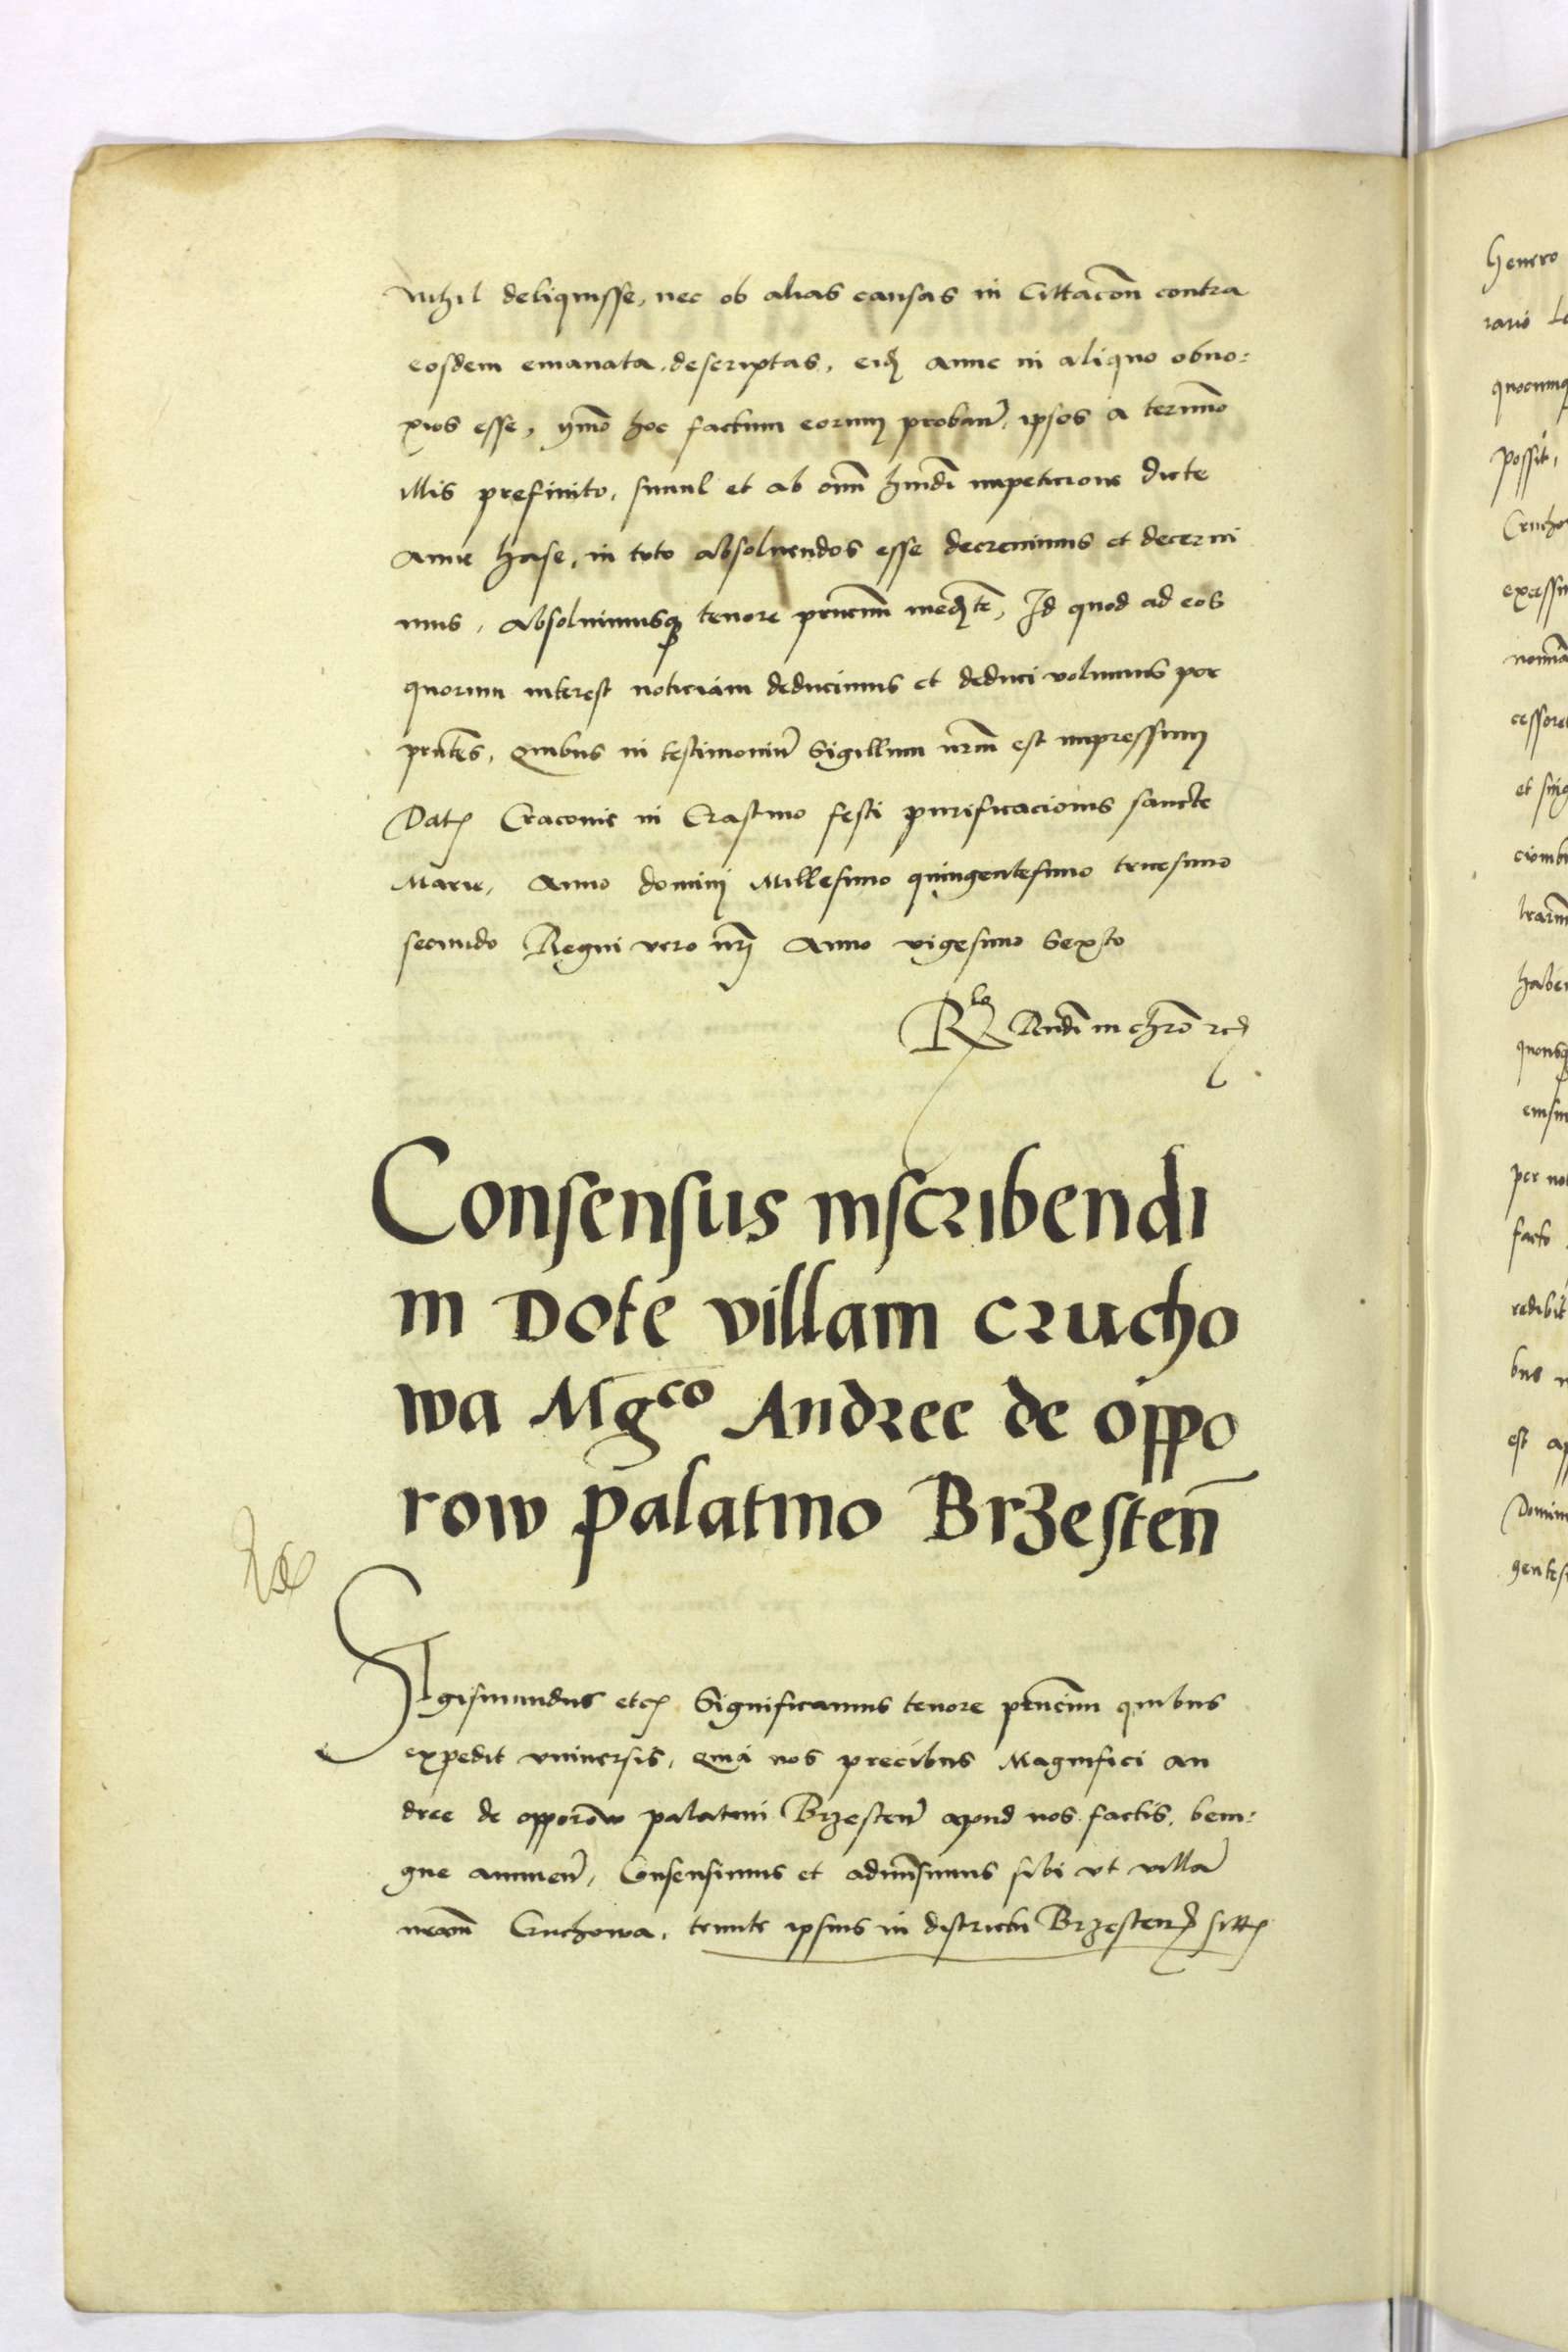 nihil deliquisse, nec ob alias causas in Cittacōn contra
eosdem emanata descriptas, eidꝫ Anne in aliquo obno:
xios esse, ymō hoc factum eorum probanť, ipsos a termīo
illis prefinito, simul et ab omī hmōdi impeticione dicte
Anne hase, in toto absoluendos esse decreuimus et decerni
mus, absoluimusqꝫ tenore pn̄cium medꝫte, Id quod ad eos
quorum interest noticiam deducimus et deduci volumus per
pn̄tes, Quibus in testimoniū Sigillum nr̄m est impressum
Datꝫ Cracouie in Crastino festi purificacionis sancte
Marie, Anno domini Millesimo quingentesimo tricesimo
secundo Regni vero nr̄i Anno vigesimo Sexto
Rla Rndi in chrō rcꝫ
Consensus inscribendi
in dote villam crucho
wa Mgco Andree de oppo
row palatino Brzesten̄
Sigismundus etcꝫ Significamus tenore pn̄cium quibus
expedit vniuersis, Quia nos precibus Magnifici An
dree de opporow palatini Brzesten̄ apud nos factis, beni:
gne annuen̄, Consensimus et admisimus sibi vt villā
Cruchowa, tenute ipsius in districtu Brzestenꝫ sittꝫ
henero
rario
possit,
Crucho
et sing
haben
per no
facto
redibit
est
Domin